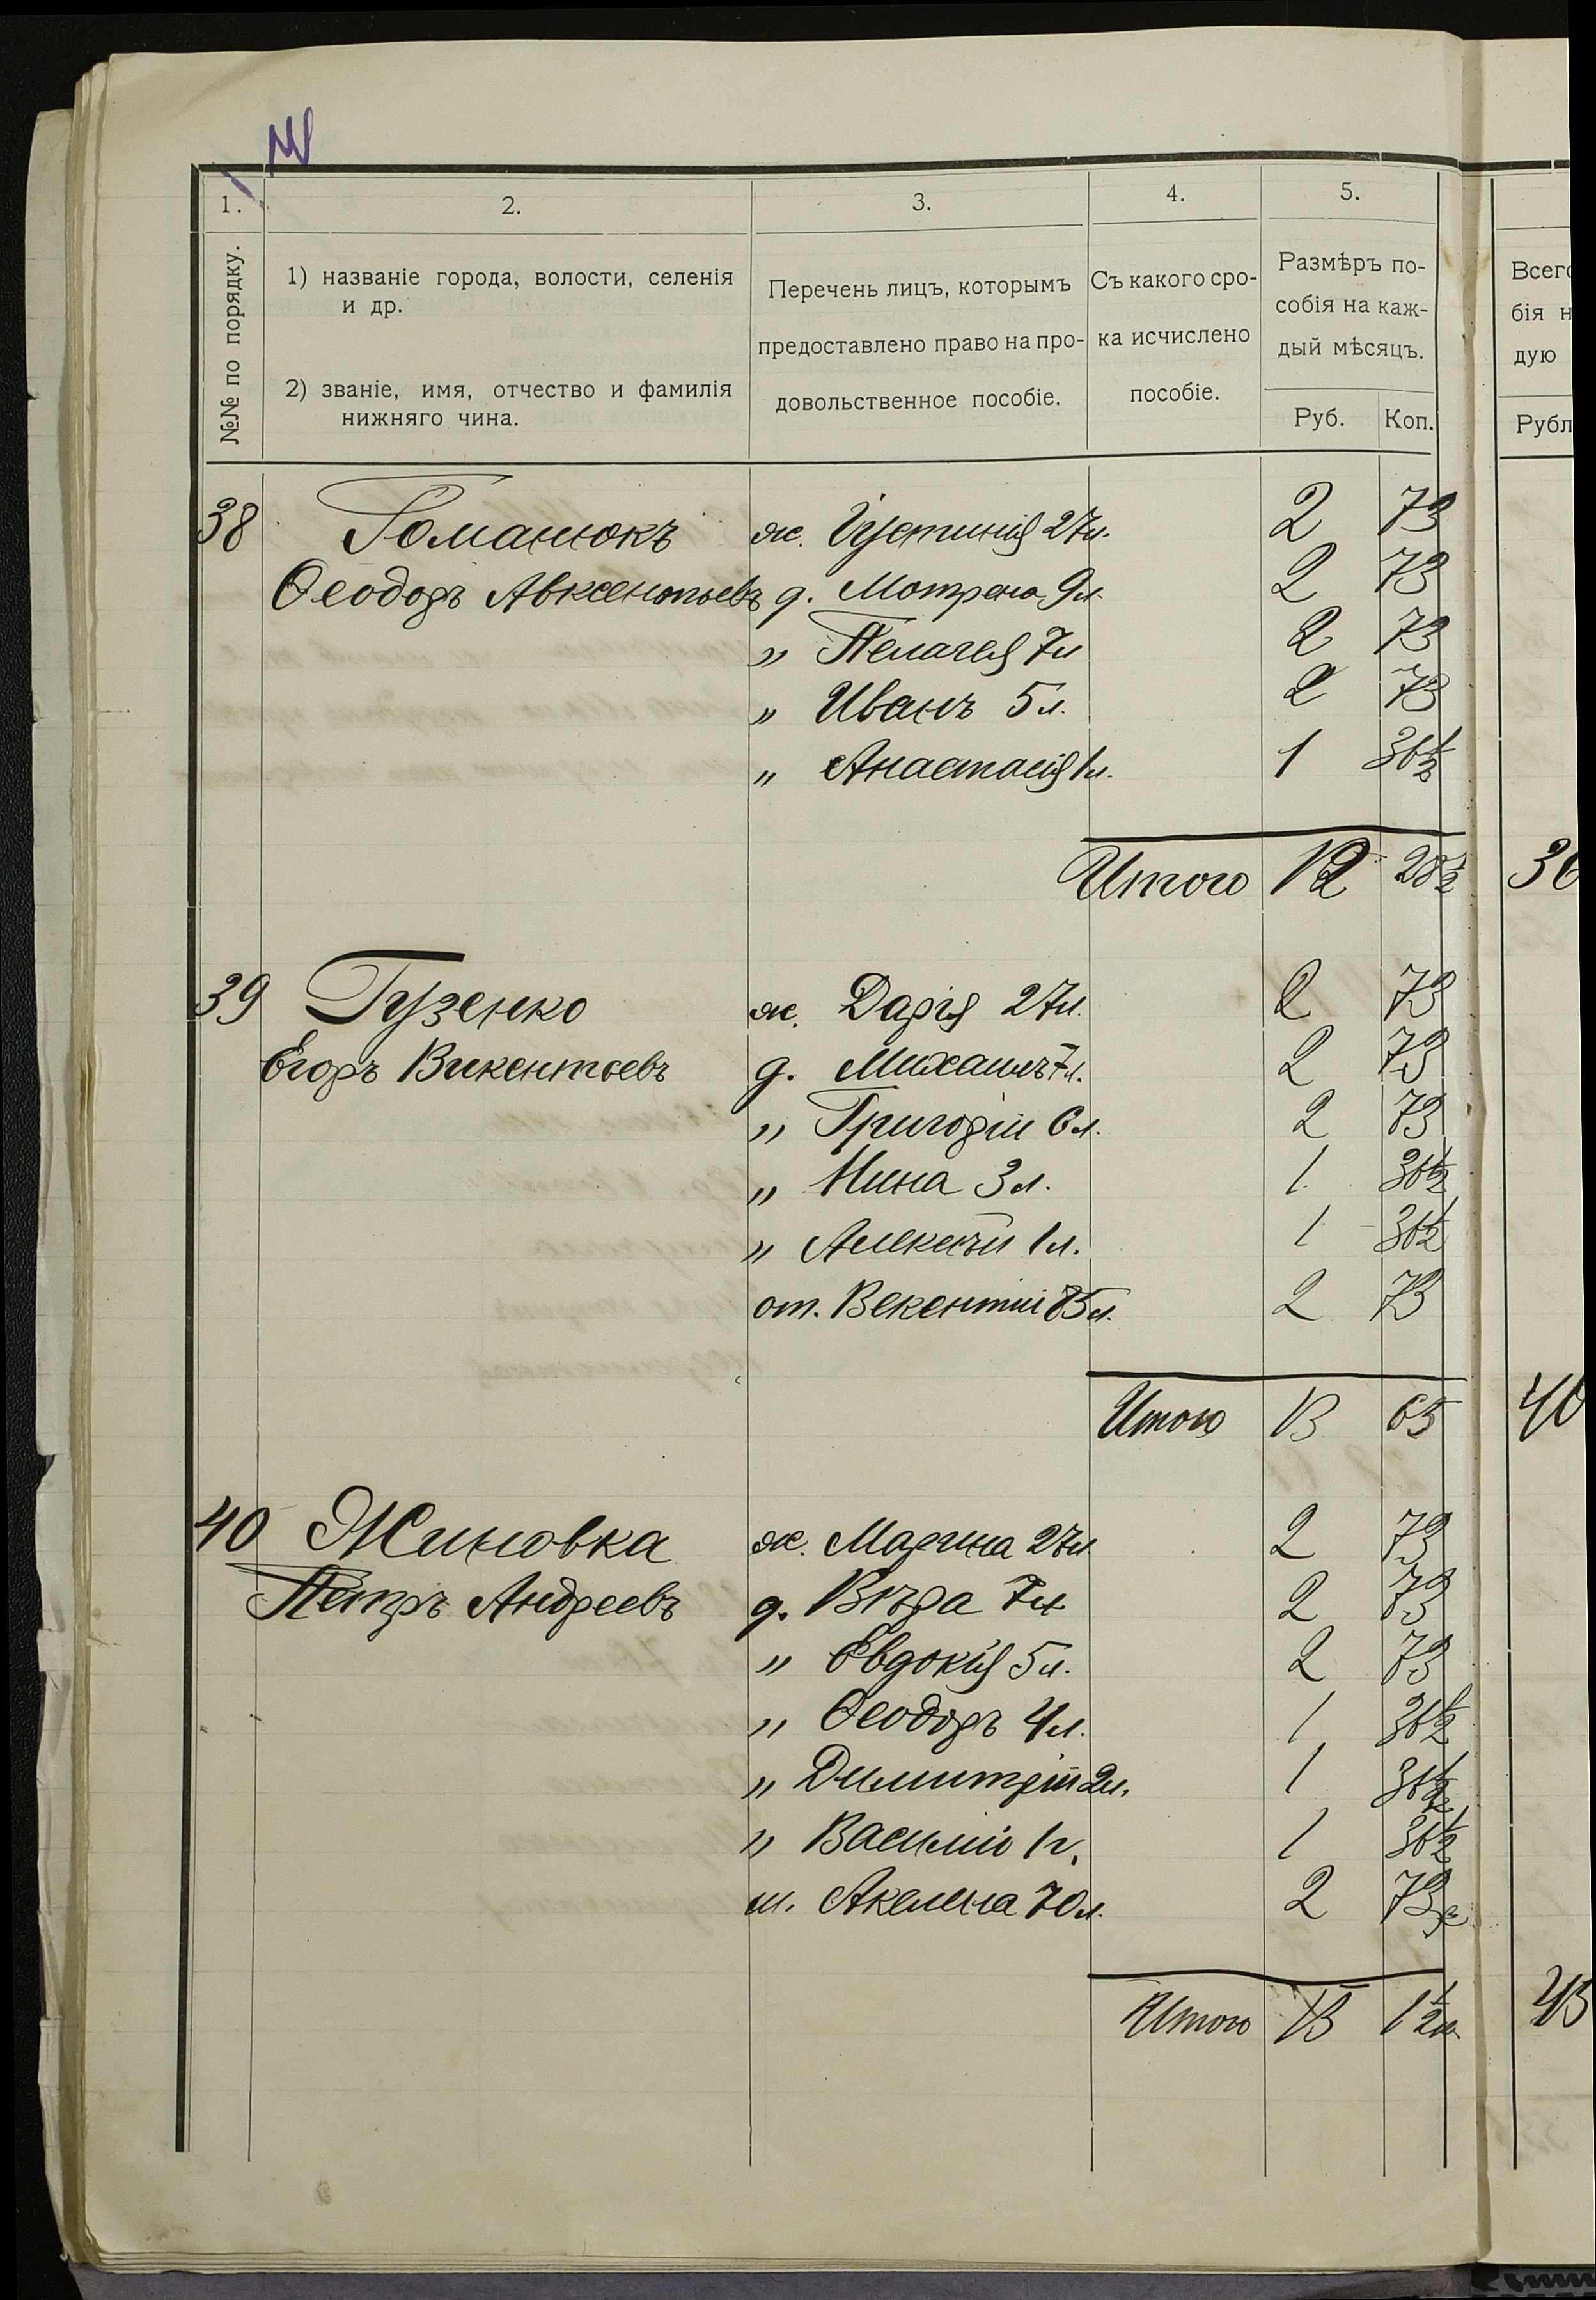 1. 2. 3. 4. 5.
№№ по порядку.
1) названіе города, волости, селенія
и др.
2) званіе, имя, отчество и фамилія
нижняго чина.
Перечень лицъ, которымъ
предоставлено право на про-
довольственное пособіе.
Съ какого сро-
ка исчислено
пособіе.
Размѣръ по-
собія на каж-
дый мѣсяцъ.
Руб. Коп.
Всего
бія н
дую
Рубл
38 Романюкъ ж. Іустинія 27л. 2 73
Ѳеодоръ Авксентьевъ д. Мотрона 9л. 2 73
" Пелагея 7л 2 73
" Иванъ 5л. 2 73
" Анастасія 1л. 1 36½
Итого 12 28½ 36
39 Гузенко ж. Дарія 27л. 2 73
Егоръ Викентьевъ д. Михаилъ 7л. 2 73
" Григорій 6л. 2 73
" Нина 3л. 1 36½
" Алексѣй 1л. 1 36½
от. Векентій 85л. 2 73
Итого 13 65 40
40 Жиновка ж. Марина 27л 2 73
Петръ Андреевъ д. Вѣра 7л 2 73
" Евдокія 5л. 2 73
" Ѳеодоръ 4л. 1 36½
" Димитрій 2л. 1 36½
" Василій 1г. 1 36½
м. Акелена 70л. 2 73
Итого 15 1½ 45